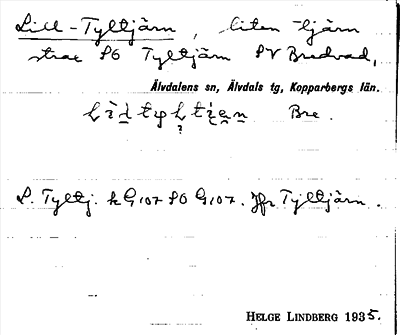 Lill-Tyltjärn, liten tjärn
strax SO Tyltjärn SV Bredvad,
Älvdalens sn, Älvdals tg, Kopparbergs län.
Bre.
L. Tyltj. k G107 SO G107. Jfr Tyltjärn.
HELGE LINDBERG 1935.